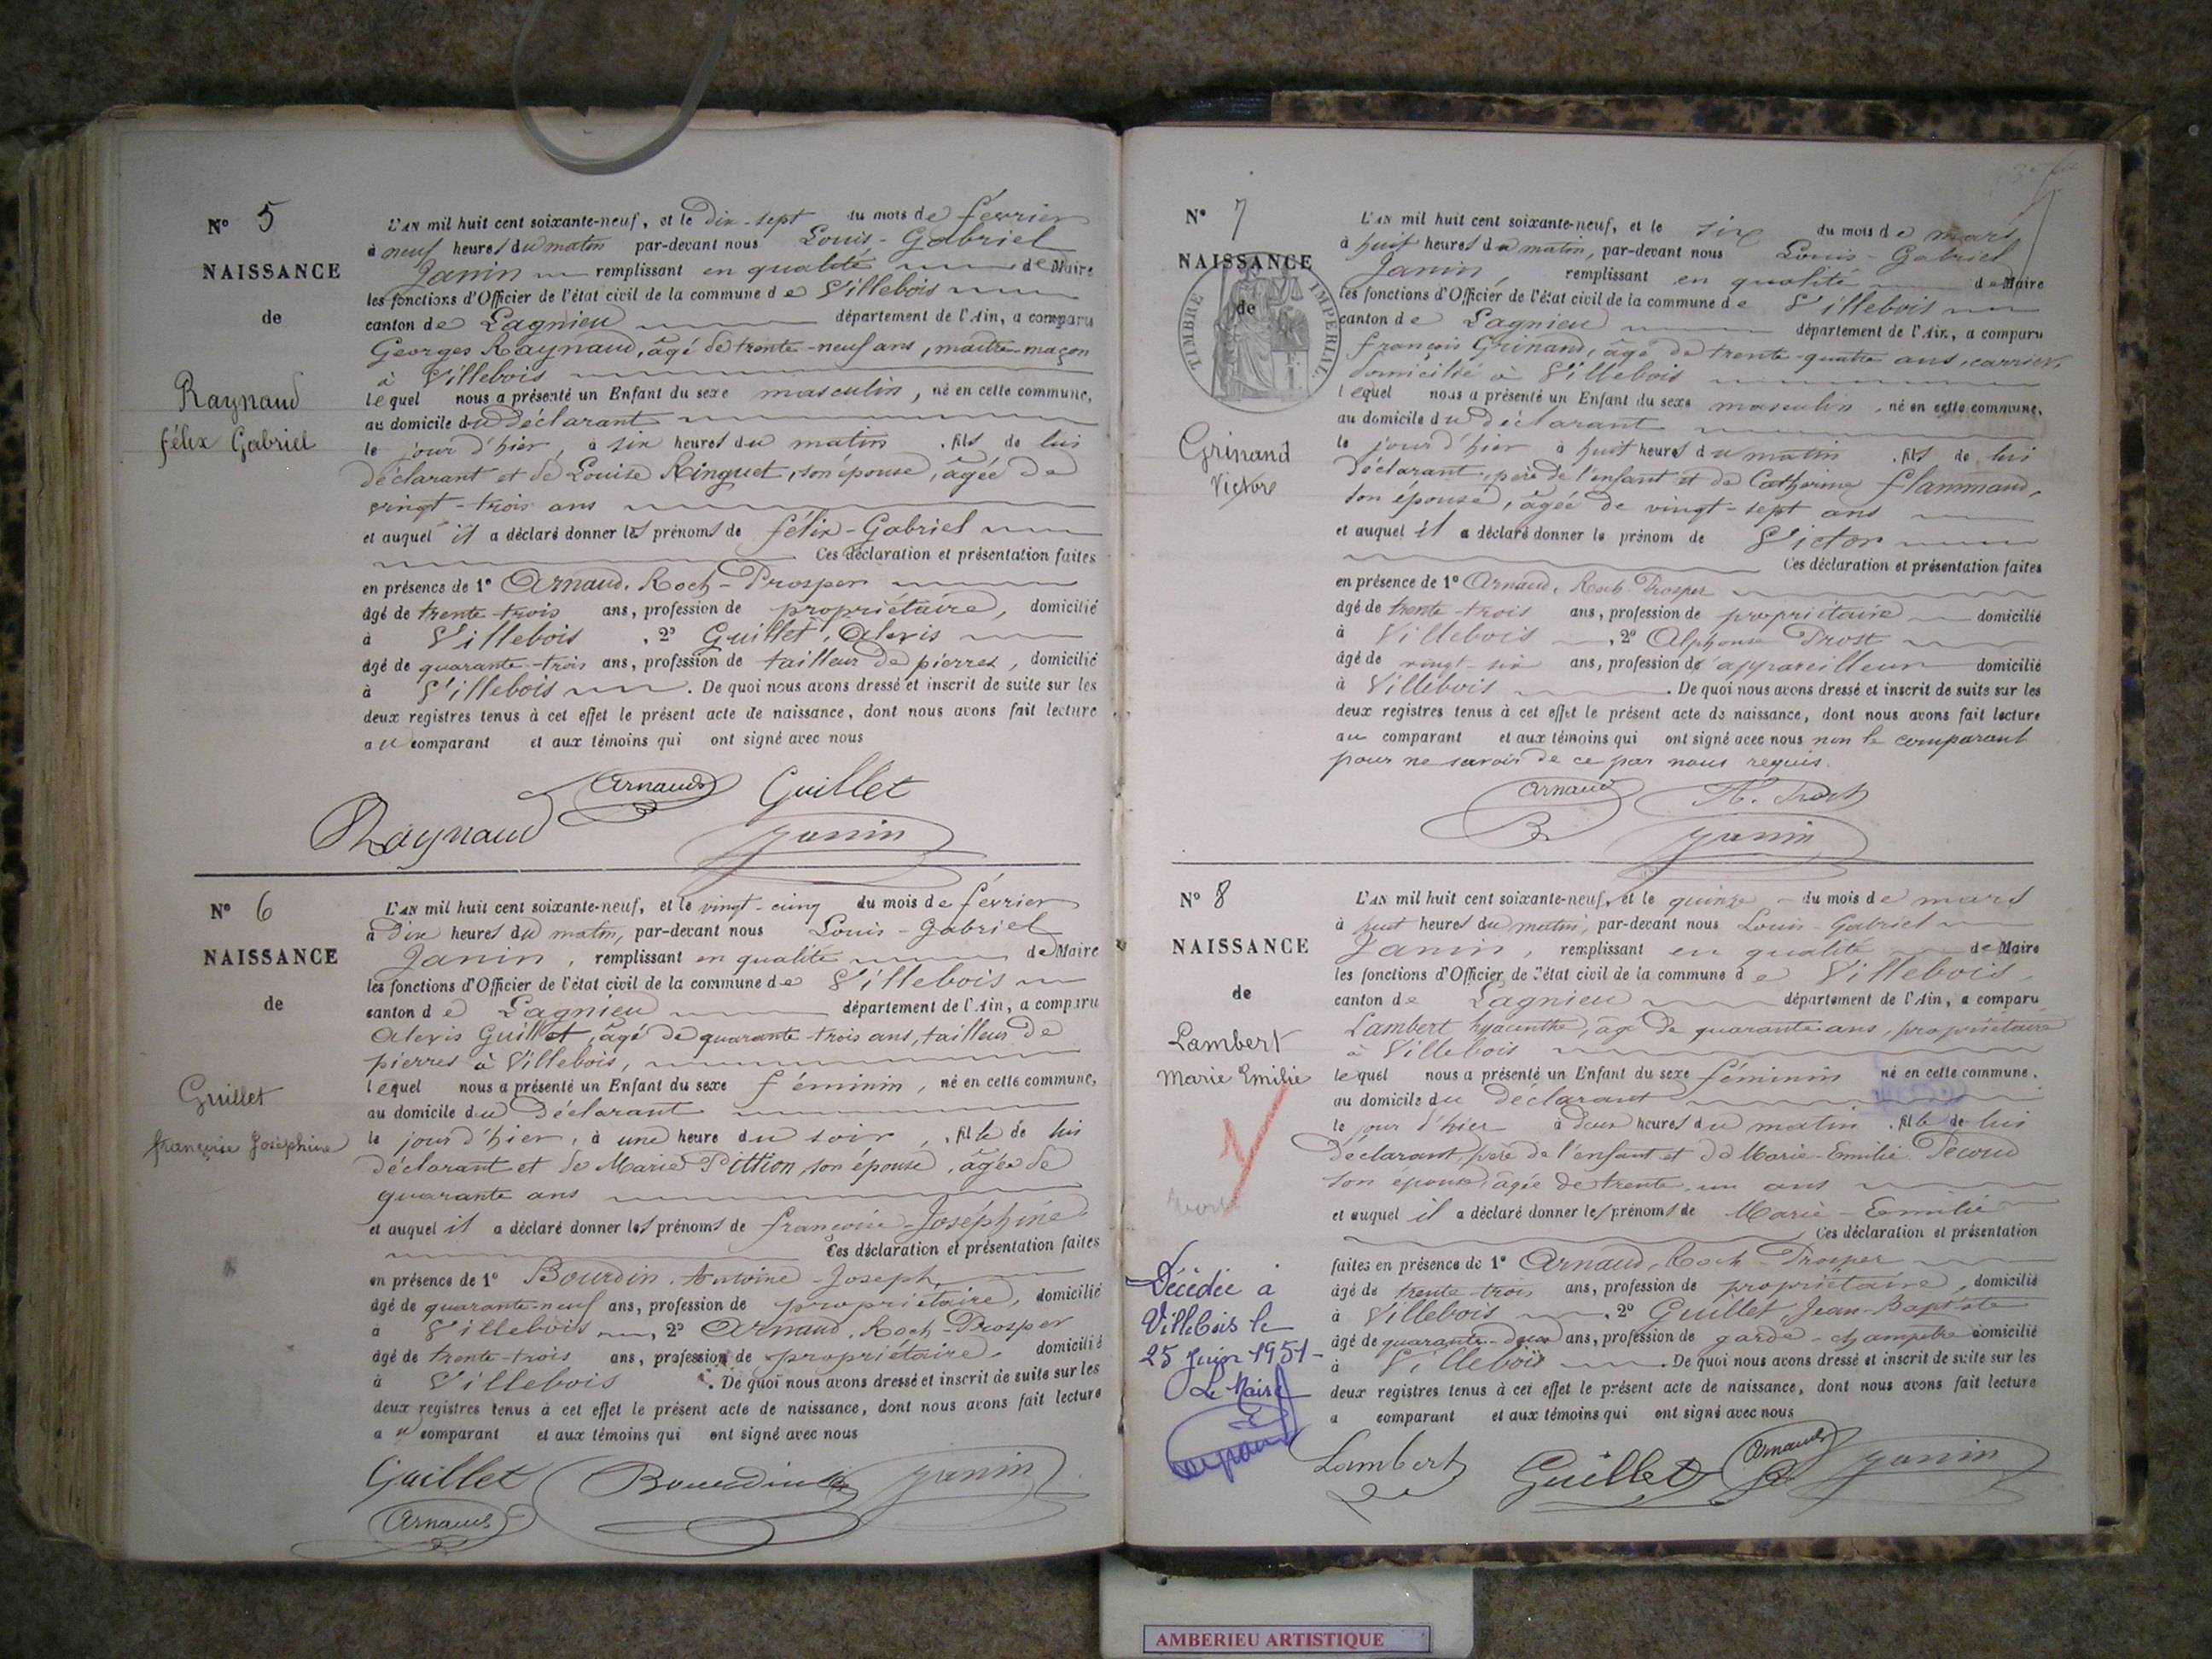 N° 5
NAISSANCE
de
Raynaud
félix Gabriel
L'AN mil huit cent soixante-neuf, et le dix-sept du mois de février
à neuf heures du matin par-devant nous Louis-Gabriel
Janin remplissant en qualité de Maire
les fonctions d'Officier de l'état civil de la commune de Villebois
canton de Lagnieu département de l'Ain, a comparu
Georges Raynaud, âgé de trente-neuf ans, maître-maçon
à Villebois
lequel nous a présenté un Enfant du sexe masculin, né en cette commune,
au domicile du déclarant
le jour d'hier, à six heures du matin, fils de lui
déclarant et de Louise Ringuet, son épouse, âgée de
vingt-trois ans
et auquel il a déclaré donner les prénoms de félix-Gabriel
Ces déclaration et présentation faites
en présence de 1° Arnaud, Roch-Prosper
âgé de trente-trois ans, profession de propriétaire, domicilié
à Villebois, 2° Guillet, Alexis
âgé de quarante-trois ans, profession de tailleur de pierres, domicilié
à Villebois. De quoi nous avons dressé et inscrit de suite sur les
deux registres tenus à cet effet le présent acte de naissance, dont nous avons fait lecture
au comparant et aux témoins qui ont signé avec nous
Arnaud Guillet
Raynaud Janin
N° 6
NAISSANCE
de
Guillet
françoise Joséphine
L'AN mil huit cent soixante-neuf, et le vingt-cinq du mois de février
à dix heures du matin, par-devant nous Louis-Gabriel
Janin, remplissant en qualité de Maire
les fonctions d'Officier de l'état civil de la commune de Villebois
canton de Lagnieu département de l'Ain, a comparu
Alexis Guillet, âgé de quarante-trois ans, tailleur de
pierres à Villebois,
lequel nous a présenté un Enfant du sexe féminin, né en cette commune,
au domicile du déclarant
le jour d'hier, à une heure du soir, fille de lui
déclarant et de Marie Pittion, son épouse, âgée de
quarante ans
et auquel il a déclaré donner les prénoms de françoise-Joséphine
Ces déclaration et présentation faites
en présence de 1° Bourdin, Antoine-Joseph,
âgé de quarante-neuf ans, profession de propriétaire, domicilié
à Villebois, 2° Arnaud, Roch-Prosper
âgé de trente-trois ans, profession de propriétaire, domicilié
à Villebois. De quoi nous avons dressé et inscrit de suite sur les
deux registres tenus à cet effet le présent acte de naissance, dont nous avons fait lecture
au comparant et aux témoins qui ont signé avec nous
Guillet Bourdin Janin
Arnaud
N° 7
NAISSANCE
de
TIMBRE IMPERIAL
Grinand
Victor
L'AN mil huit cent soixante-neuf, et le six du mois de mars
à huit heures du matin, par-devant nous Louis-Gabriel
Janin, remplissant en qualité de Maire
les fonctions d'Officier de l'état civil de la commune de Villebois
canton de Lagnieu département de l'Ain, a comparu
françois Grinand, âgé de trente-quatre ans, carrier,
domicilié à Villebois
lequel nous a présenté un Enfant du sexe masculin, né en cette commune,
au domicile du déclarant
le jour d'hier à huit heures du matin, fils de lui
déclarant, père de l'enfant et de Catherine flammand,
son épouse, âgée de vingt-sept ans
et auquel il a déclaré donner le prénom de Victor
Ces déclaration et présentation faites
en présence de 1° Arnaud, Roch-Prosper
âgé de trente-trois ans, profession de propriétaire domicilié
à Villebois, 2° Alphonse Trost
âgé de vingt-six ans, profession d'appareilleur domicilié
à Villebois. De quoi nous avons dressé et inscrit de suite sur les
deux registres tenus à cet effet le présent acte de naissance, dont nous avons fait lecture
au comparant et aux témoins qui ont signé avec nous non le comparant
pour ne savoir de ce par nous requis.
Arnaud A. Trost
Janin
N° 8
NAISSANCE
de
Lambert
Marie Emilie
Décédée à
Villebois le
25 Juin 1951-
Le Maire
L'AN mil huit cent soixante-neuf, et le quinze du mois de mars
à huit heures du matin, par-devant nous Louis-Gabriel
Janin, remplissant en qualité de Maire
les fonctions d'Officier de l'état civil de la commune de Villebois
canton de Lagnieu département de l'Ain, a comparu
Lambert hyacinthe, âgé de quarante ans, propriétaire
à Villebois
lequel nous a présenté un Enfant du sexe féminin né en cette commune,
au domicile du déclarant
le jour d'hier à deux heures du matin, fille de lui
déclarant, père de l'enfant et de Marie-Emilie Pécoud
son épouse, âgée de trente-un ans
et auquel il a déclaré donner les prénoms de Marie-Emilie
Ces déclaration et présentation
faites en présence de 1° Arnaud, Roch-Prosper
âgé de trente-trois ans, profession de propriétaire, domicilié
à Villebois, 2° Guillet, Jean-Baptiste
âgé de quarante-deux ans, profession de garde-champêtre domicilié
à Villebois. De quoi nous avons dressé et inscrit de suite sur les
deux registres tenus à cet effet le présent acte de naissance, dont nous avons fait lecture
a comparant et aux témoins qui ont signé avec nous
Lambert Guillet Arnaud Janin
AMBERIEU ARTISTIQUE